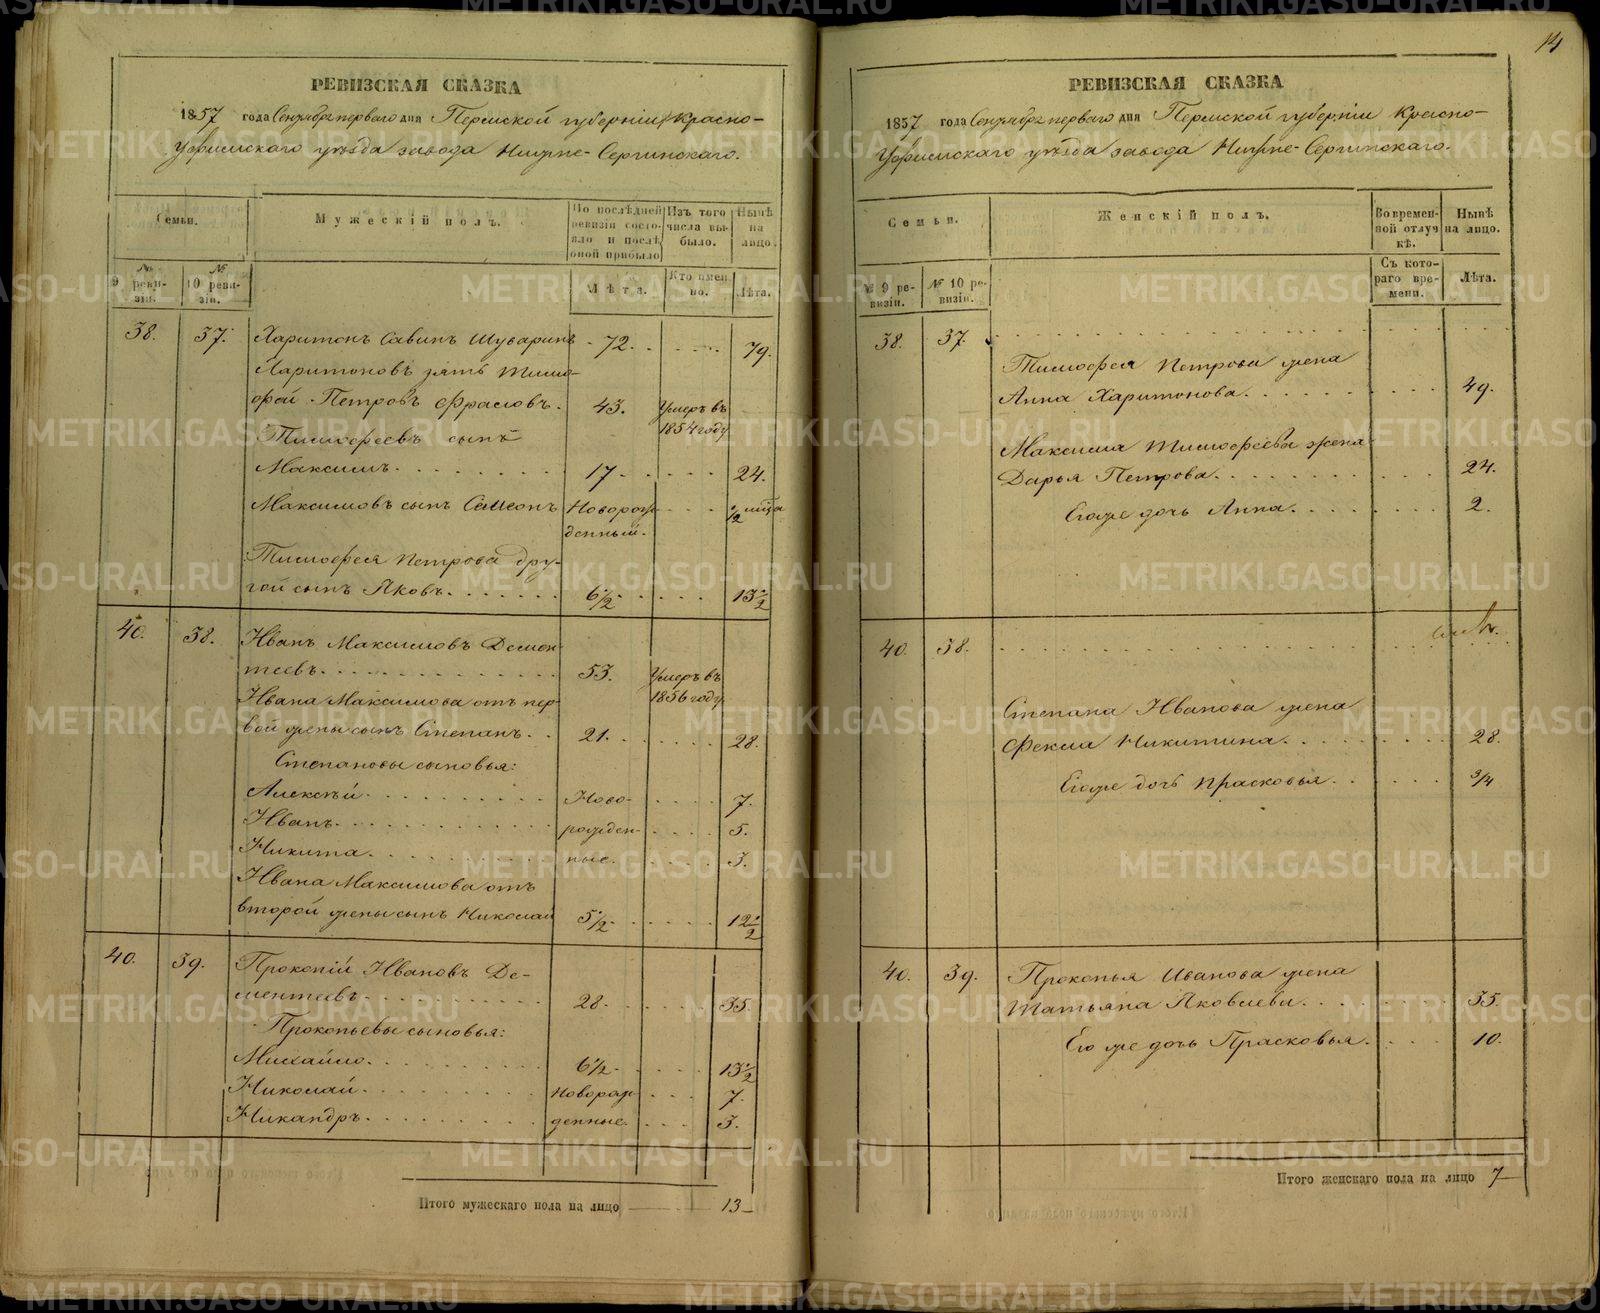 РЕВИЗСКАЯ СКАЗКА
1857 года Сентября первого дня Пермской губерніи Красно-
Уфимскаго уѣзда завода Нижне-Сергинскаго.
Семьи.
Мужескій полъ.
По послѣдней ревизіи состояло и послѣ оной прибыло
Изъ того числа выбыло.
Нынѣ на лицо.
№ 9 ревизіи.
№ 10 ревизіи.
Лѣта.
Кто имен но.
Лѣта.
38. 37. Харитонъ Савинъ Шуваринъ 72. 79.
Харитоновъ зять Тимо-
фей Петровъ Фрасовъ. 43. Умеръ въ
Тимофеевъ сынъ 1854 году
Максимъ 17 24.
Максимовъ сынъ Семенъ Новорож- 1/2 мѣсца
денный.
Тимофея Петрова дру-
гой сынъ Яковъ 6 1/2 13 1/2
40. 38. Иванъ Максимовъ Демен-
теевъ 53. Умеръ въ
Ивана Максимова отъ пер- 1856 году
вой жены сынъ Степанъ 21. 28.
Степановы сыновья:
Алексѣй Ново- 7.
Иванъ рожден- 5.
Никита ные. 3.
Ивана Максимова отъ
второй жены сынъ Николай 5 1/2 12 1/2
40. 39. Прокопій Ивановъ Де-
ментеевъ 28. 35.
Прокопьевы сыновья:
Михайло 6 1/2 13 1/2
Николай Новорож- 7.
Никандръ денные. 3.
Итого мужескаго пола на лицо 13
14
РЕВИЗСКАЯ СКАЗКА
1857 года Сентября первого дня Пермской губерніи Красно-
Уфимскаго уѣзда завода Нижне-Сергинскаго.
Семьи.
Женскій полъ.
Во временной отлучкѣ.
Нынѣ на лицо.
№ 9 ревизіи.
№ 10 ревизіи.
Съ котораго времени.
Лѣта.
38. 37.
Тимофея Петрова жена
Анна Харитонова. 49.
Максима Тимофеева жена
Дарья Петрова. 24.
Егоже дочь Анна. 2.
40. 38.
Степана Иванова жена
Фекла Никитина. 28.
Егоже дочь Прасковья. 3/4
40. 39. Прокопья Иванова жена
Татьяна Яковлева. 35.
Его же дочь Прасковья. 10.
Итого женскаго пола на лицо 7
METRIKI.GASO-URAL.RU